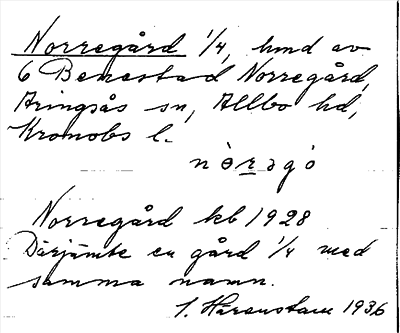 Norregård 1/4, hmd av
6 Benestad Norregård,
Aringsås sn, Allbo hd,
Kronobs l.
nòragò
Norregård kb 1928
Därjämte en gård 1/4 med
samma namn.
Harenstam 1936